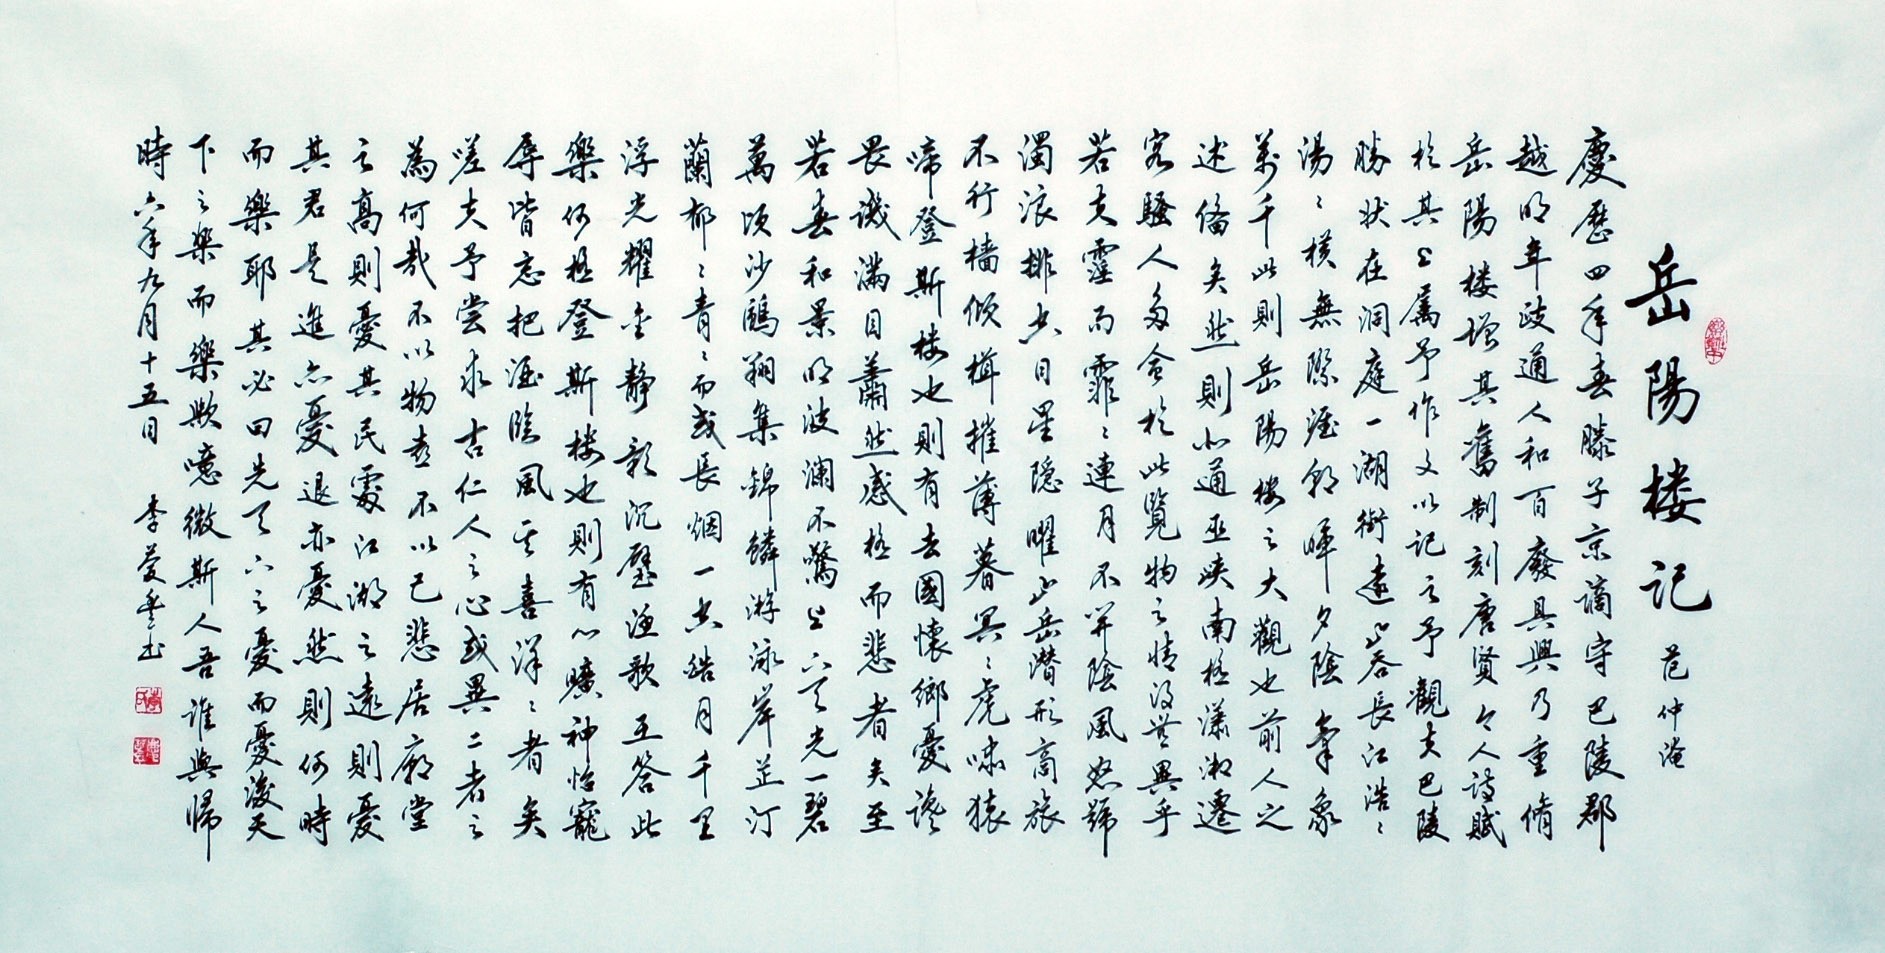 岳陽楼记 范仲淹
慶歷四年春滕子京謫守巴陵郡
越明年政通人和百廢具興乃重脩
岳陽楼增其舊制刻唐贤今人詩賦
於其上属予作文以记之予觀夫巴陵
勝状在洞庭一湖銜遠山吞長江浩〻
湯〻横無際涯朝暉夕陰氣象
萬千此則岳陽楼之大觀也前人之
述俻矣然則北通巫峡南極潇湘遷
客騷人多会於此覽物之情得無異乎
若夫霪雨霏〻連月不开陰風怒號
濁浪排空日星隐曜山岳潜形商旅
不行樯傾楫摧薄暮冥〻虎啸猿
啼登斯楼也則有去國懷鄉憂讒
畏譏滿目蕭然感極而悲者矣至
若春和景明波澜不驚上下天光一碧
萬頃沙鷗翔集錦鱗游泳岸芷汀
蘭郁〻青〻而或長烟一空皓月千里
浮光耀金静影沉壁渔歌互答此
樂何極登斯楼也則有心曠神怡寵
辱皆忘把酒临風其喜洋〻者矣
嗟夫予尝求古仁人之心或異二者之
為何哉不以物喜不以己悲居廟堂
之高則憂其民處江湖之遠則憂
其君是進亦憂退亦憂然則何時
而樂耶其必曰先天下之憂而憂後天
下之樂而樂歟噫微斯人吾谁與歸
時六年九月十五日 李